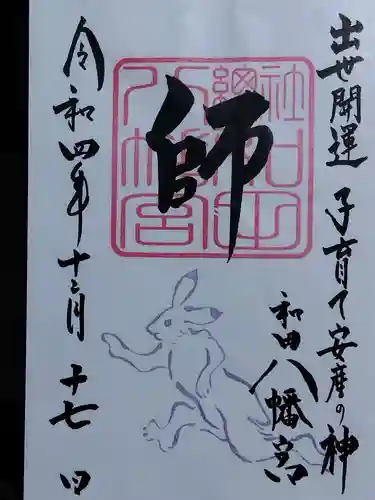 出世開運 子育て安産の神
和田八幡宮
師
令和四年十二月十七日